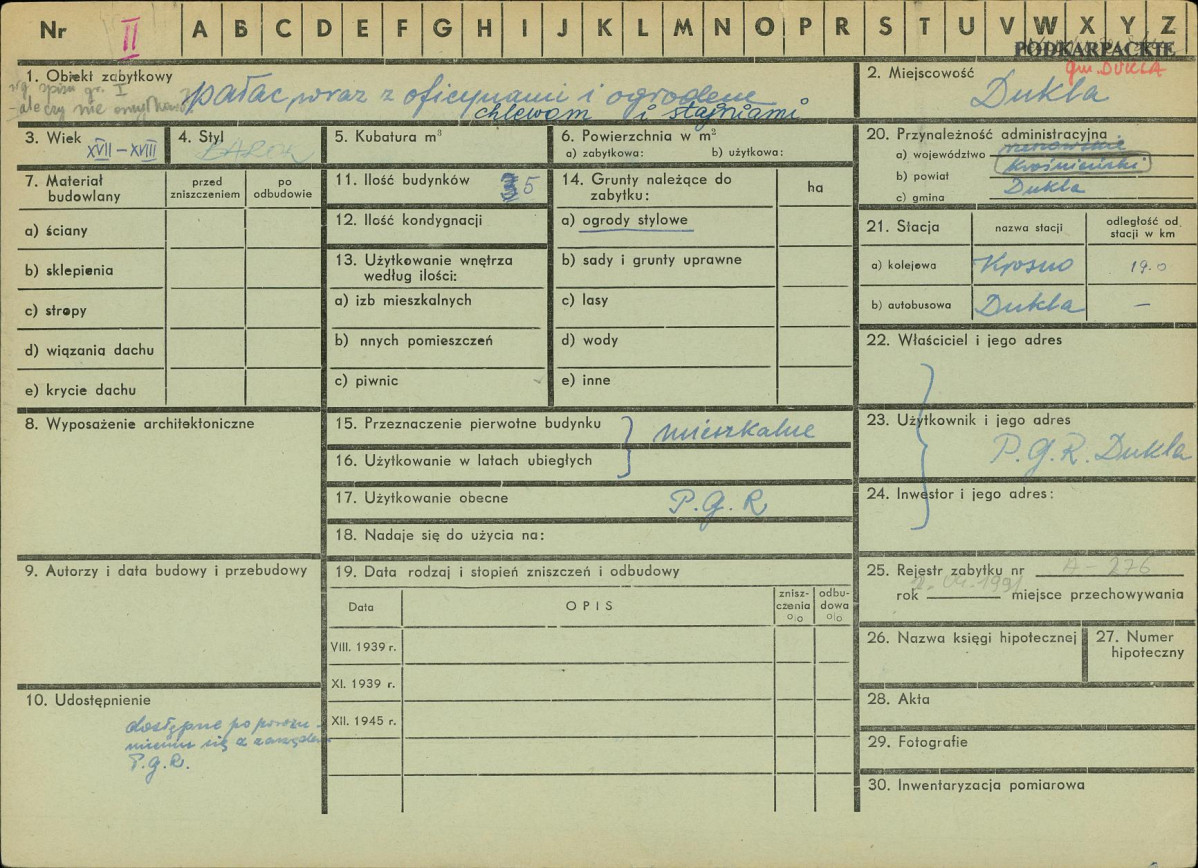 Nr II A B C D E F G H I J K L M N O P R S T U V W X Y Z
PODKARPACKIE
gm. DUKLA
1. Obiekt zabytkowy
wg. spisu gr. I
pałac wraz z oficynami i ogrodem
chlewam i stajniami
2. Miejscowość
Dukla
3. Wiek XVII – XVIII
4. Styl BAROK
5. Kubatura m³
6. Powierzchnia w m²
a) zabytkowa: b) użytkowa:
7. Materiał budowlany
przed zniszczeniem
po odbudowie
a) ściany
b) sklepienia
c) stropy
d) wiązania dachu
e) krycie dachu
8. Wyposażenie architektoniczne
9. Autorzy i data budowy i przebudowy
10. Udostępnienie
dostępne po porozu-
mieniu się z zarządem
P.G.R.
11. Ilość budynków 3 5
12. Ilość kondygnacji
13. Użytkowanie wnętrza
według ilości:
a) izb mieszkalnych
b) nnych pomieszczeń
c) piwnic
14. Grunty należące do
zabytku:
ha
a) ogrody stylowe
b) sady i grunty uprawne
c) lasy
d) wody
e) inne
15. Przeznaczenie pierwotne budynku
mieszkalne
16. Użytkowanie w latach ubiegłych
17. Użytkowanie obecne P.G.R
18. Nadaje się do użycia na:
19. Data rodzaj i stopień zniszczeń i odbudowy
Data
OPIS
znisz-
czenia
o/o
odbu-
dowa
o/o
VIII. 1939 r.
XI. 1939 r.
XII. 1945 r.
20. Przynależność administracyjna
a) województwo rzeszowskie
b) powiat krośnieński
c) gmina Dukla
21. Stacja
nazwa stacji
odległość od
stacji w km
a) kolejowa Krosno 19.0
b) autobusowa Dukla —
22. Właściciel i jego adres
23. Użytkownik i jego adres
P.G.R. Dukla
24. Inwestor i jego adres:
25. Rejestr zabytku nr A – 276
rok 04.1991 miejsce przechowywania
26. Nazwa księgi hipotecznej
27. Numer
hipoteczny
28. Akta
29. Fotografie
30. Inwentaryzacja pomiarowa